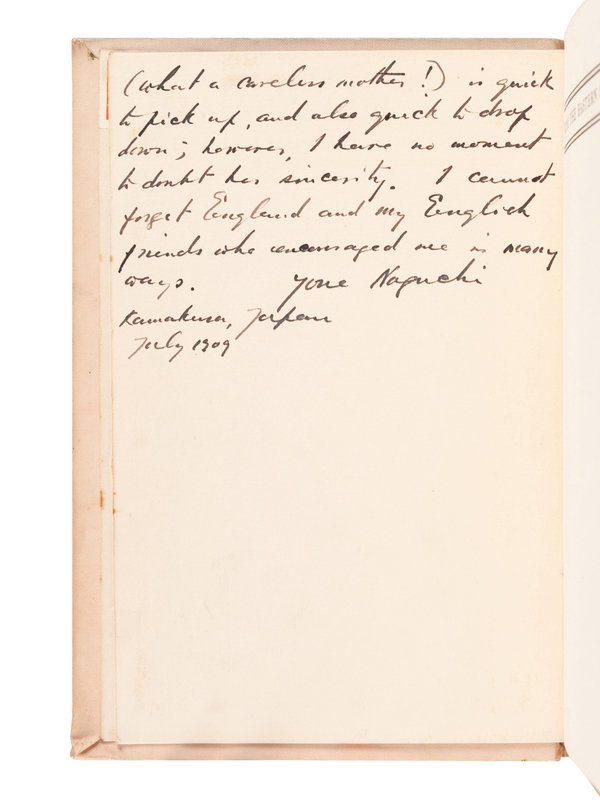 (what a careless mother!) is quick
to pick up, and also quick to drop
down; however, I have no moment
to doubt her sincerity. I cannot
forget England and my English
friends who encouraged me in many
ways. Yone Noguchi
Kamakura, Japan
July 1909
THE EASTERN